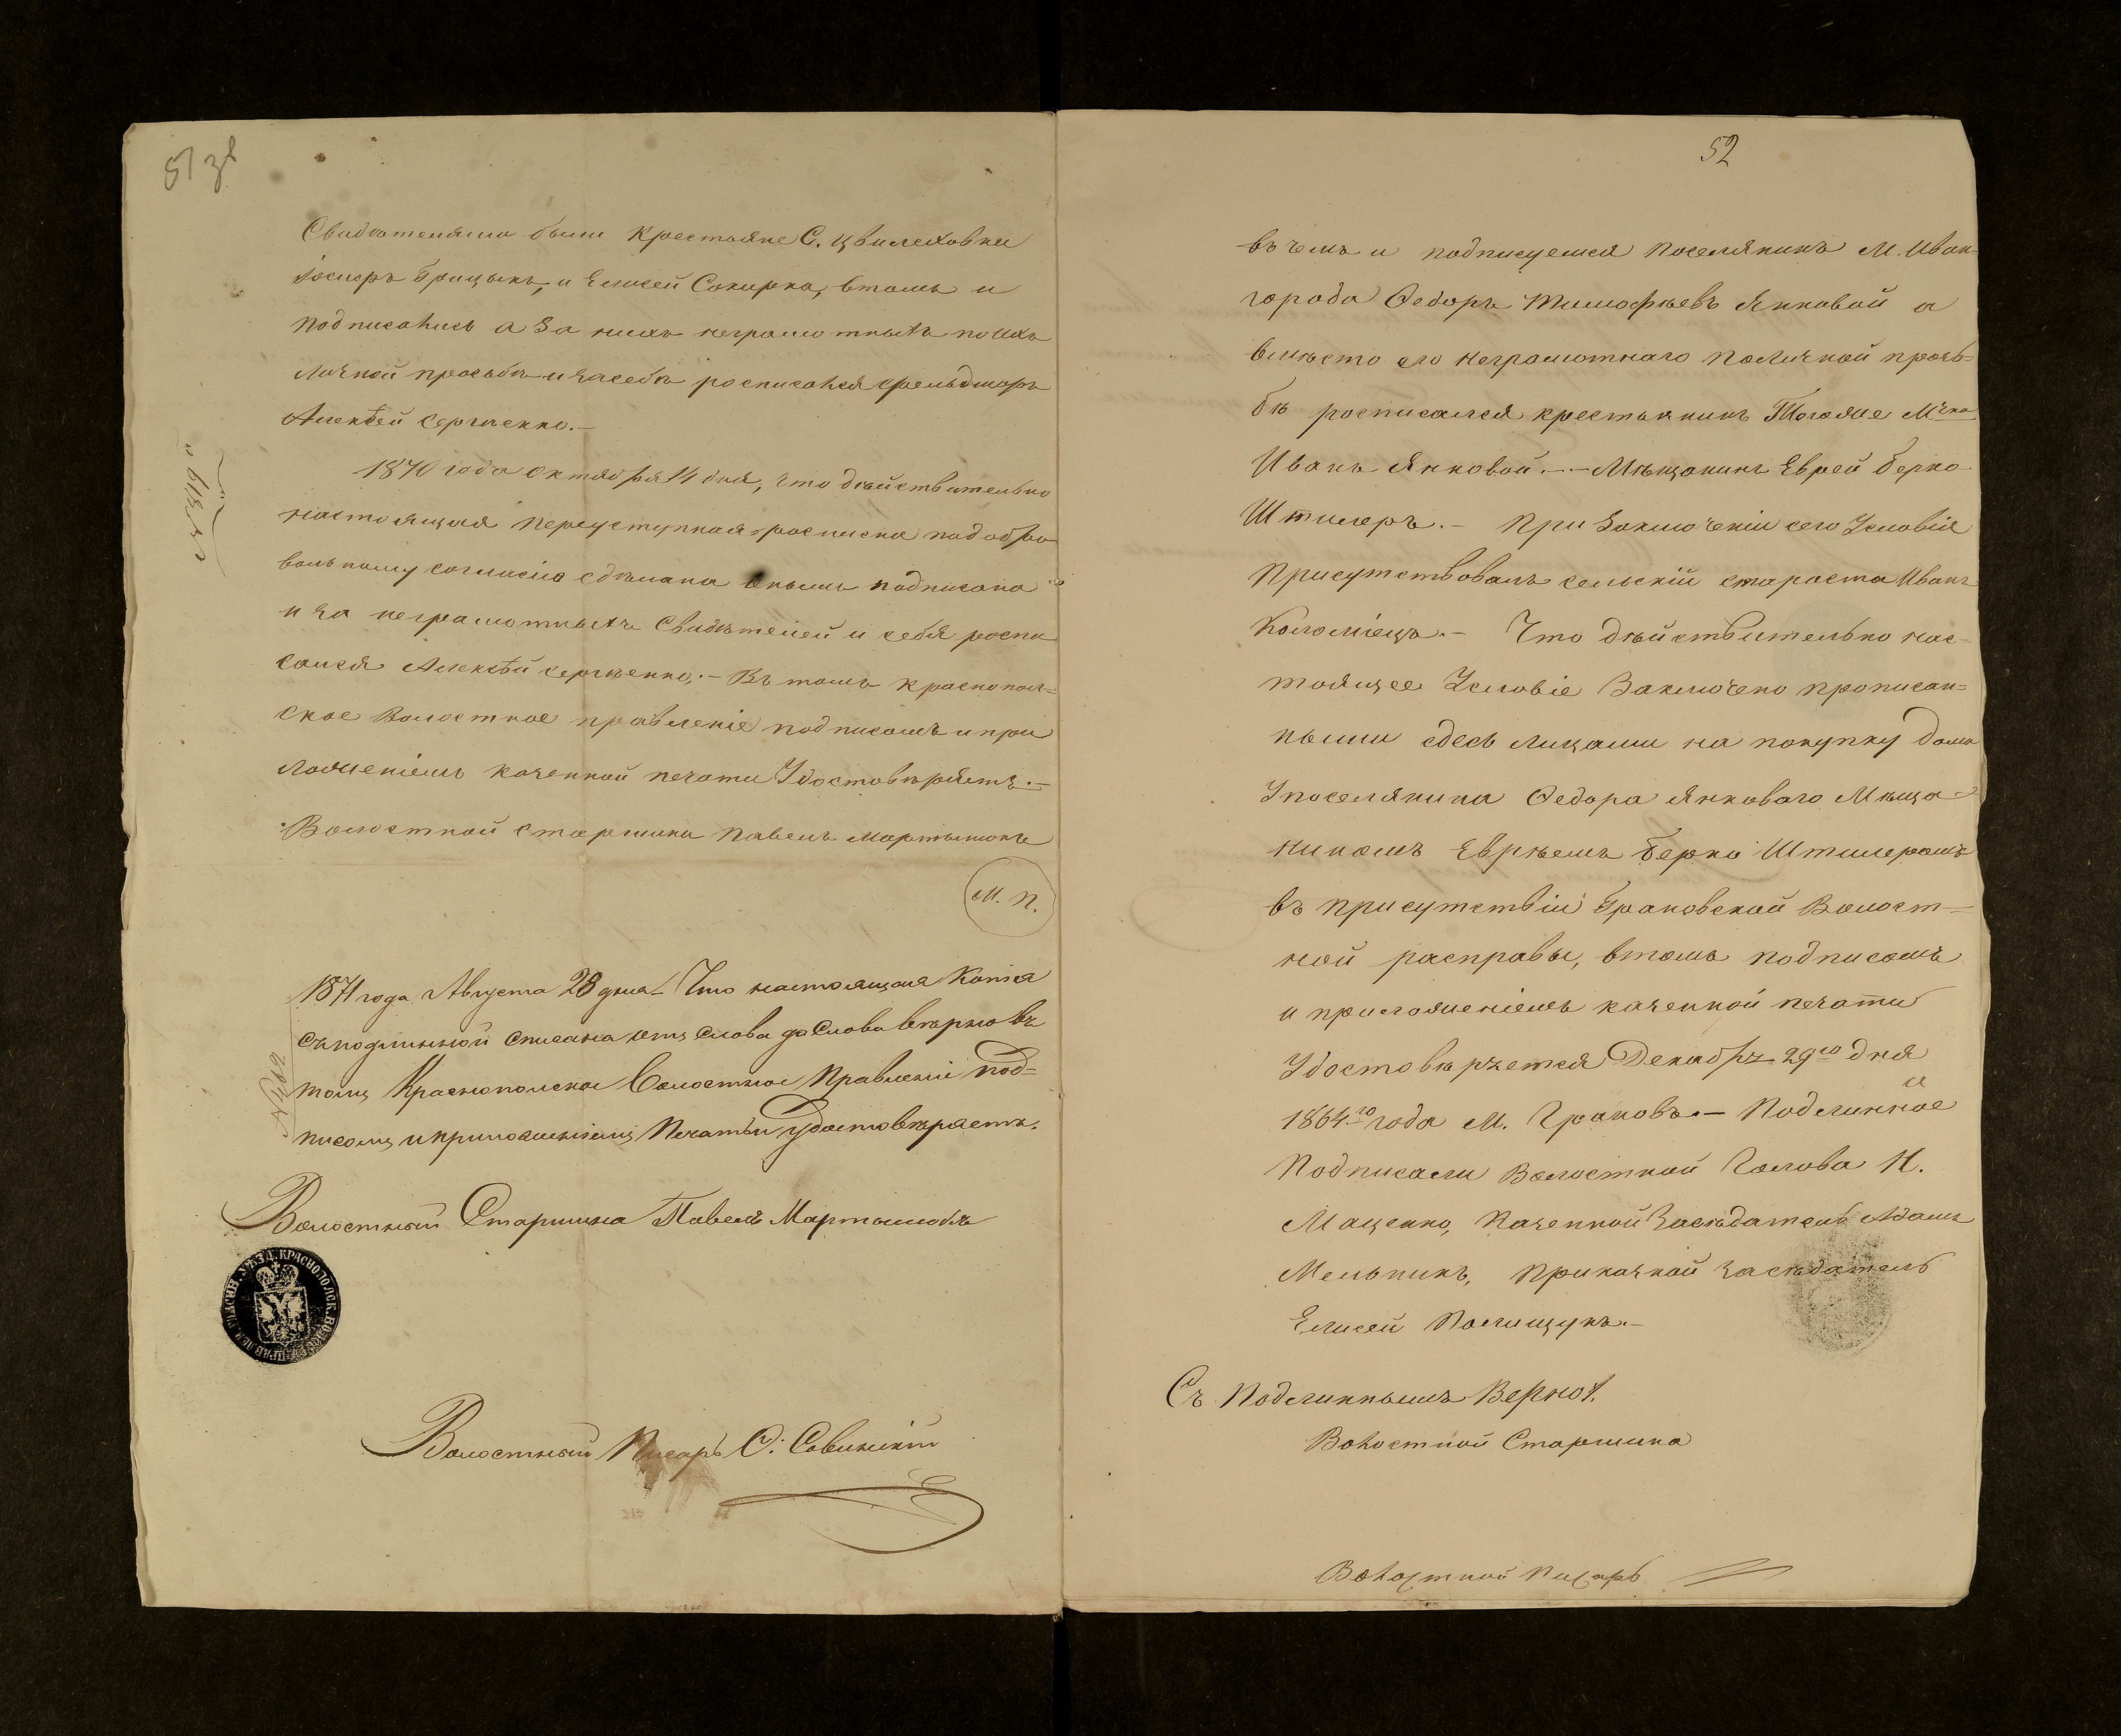 51 зв
Свидѣтелями были Крестьяне С. Цвилеховки
Іосифъ Грицыкъ, и Елисей Сокирко, втомъ и
подписались а за нихъ неграмотныхъ по ихъ
личной просьбѣ и засебя росписался фельдшоръ
Алексѣй Сергѣенко.—
1870 года Октября 14 дня, что дѣйствительно
настоящая переуступная росписка подобро
вольному согласію сдѣлана онымъ подписано
и за неграмотныхъ Свидѣтелей и себя роспи
сался Алексѣй Сергѣенко.— Въ томъ Краснополь=
ское Волостное правленіе подписомъ и при
ложеніемъ казенной печати Удостовѣряетъ.—
Волостной старшина Павелъ Мартынюкъ
М. П.
1871 года Августа 28 дня. Что настоящая Копія
съподлинной списана отъ слова до слова вѣрно въ
томъ Краснопольское Волостное Правленіе под=
писомъ и приложеніемъ Печати удостовѣряетъ.
Волостный Старшина Павелъ Мартынюкъ
Волостный Писарь О. Савинскій
52
въ чемъ и подписуемся поселянинъ М. Иван=
города Федоръ Тимофѣевъ Янковой а
вмѣсто его неграмотнаго поличной прозь=
бѣ росписался крестьянинъ Тогоже М-ка
Иванъ Янковой.— Мѣщанинъ Еврей Берко
Штилеръ.— При Заключеніи сего Условія
присутствовалъ сельскій староста Иванъ
Коломіецъ.— Что дѣйствительно нас=
тоящее Условіе Заключено прописан=
ными сдесь лицами на покупку дома
Упоселянина Федора Янковаго Мѣща=
ниномъ Евреемъ Берко Штилеромъ
въ присутствіи Грановской Волост=
ной расправы, втомъ подписомъ
и приложеніемъ казенной печати
Удостовѣржется Декабрѣ 29го дня
1864го года М. Грановъ.— Подлинное
Подписали Волостной Голова Н.
Маценко, Казенной Засѣдатель Адамъ
Мельникъ, Приказной засѣдатель
Елисей Полищукъ.—
Съ Подлиннымъ Верно:
Волостной Старшина
Волостной Писарь